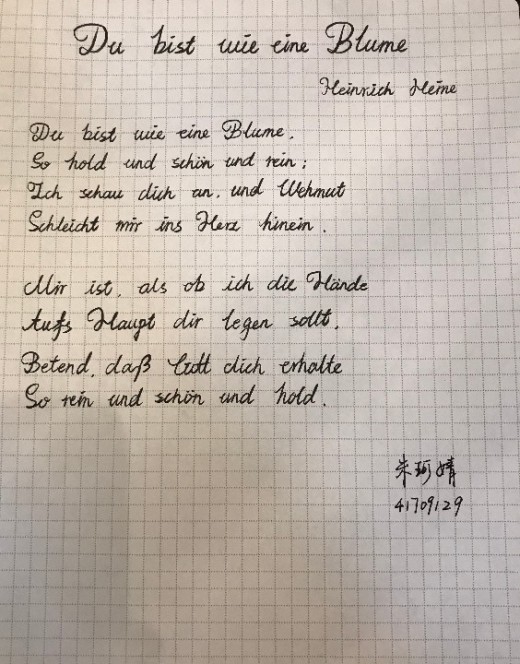 Du bist wie eine Blume
Heinrich Heine
Du bist wie eine Blume.
So hold und schön und rein;
Ich schau dich an, und Wehmut
Schleicht mir ins Herz hinein.
Mir ist, als ob ich die Hände
Aufs Haupt dir legen sollt,
Betend, daß Gott dich erhalte
So rein und schön und hold.
朱珂婧
41709129